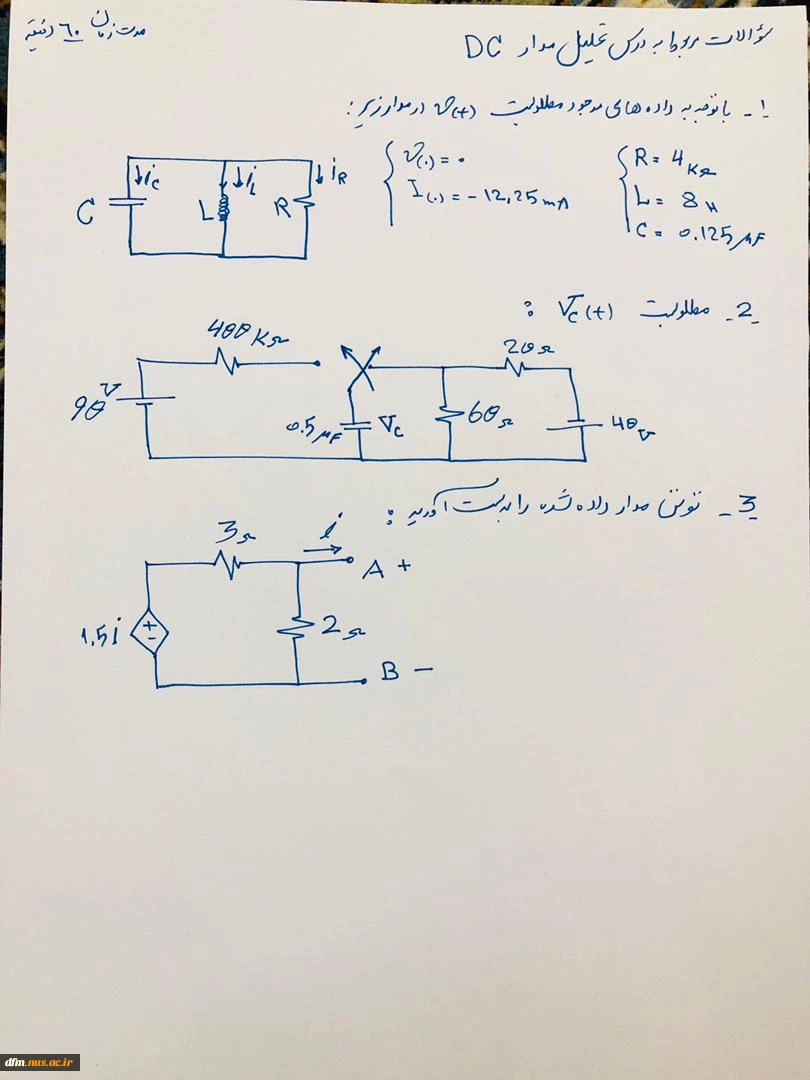 سؤالات مربوط به درس تحلیل مدار DC
مدت زمان ٦٠ دقیقه
1- با توجه به داده های موجود مطلوبست v(t) در مدار زیر:
C ↓ic L ↓iL R ↓iR
v(0) = 0
I(0) = -12,25 mA
R = 4 KΩ
L = 8 H
C = 0.125 μF
2- مطلوبست Vc(t) :
400 KΩ
20Ω
90 V
0.5 μF
Vc
60Ω
40 V
3- تونن مدار داده شده را بدست آورید:
3Ω
i
A +
1.5i
+
-
2Ω
B -
dfm.nus.ac.ir